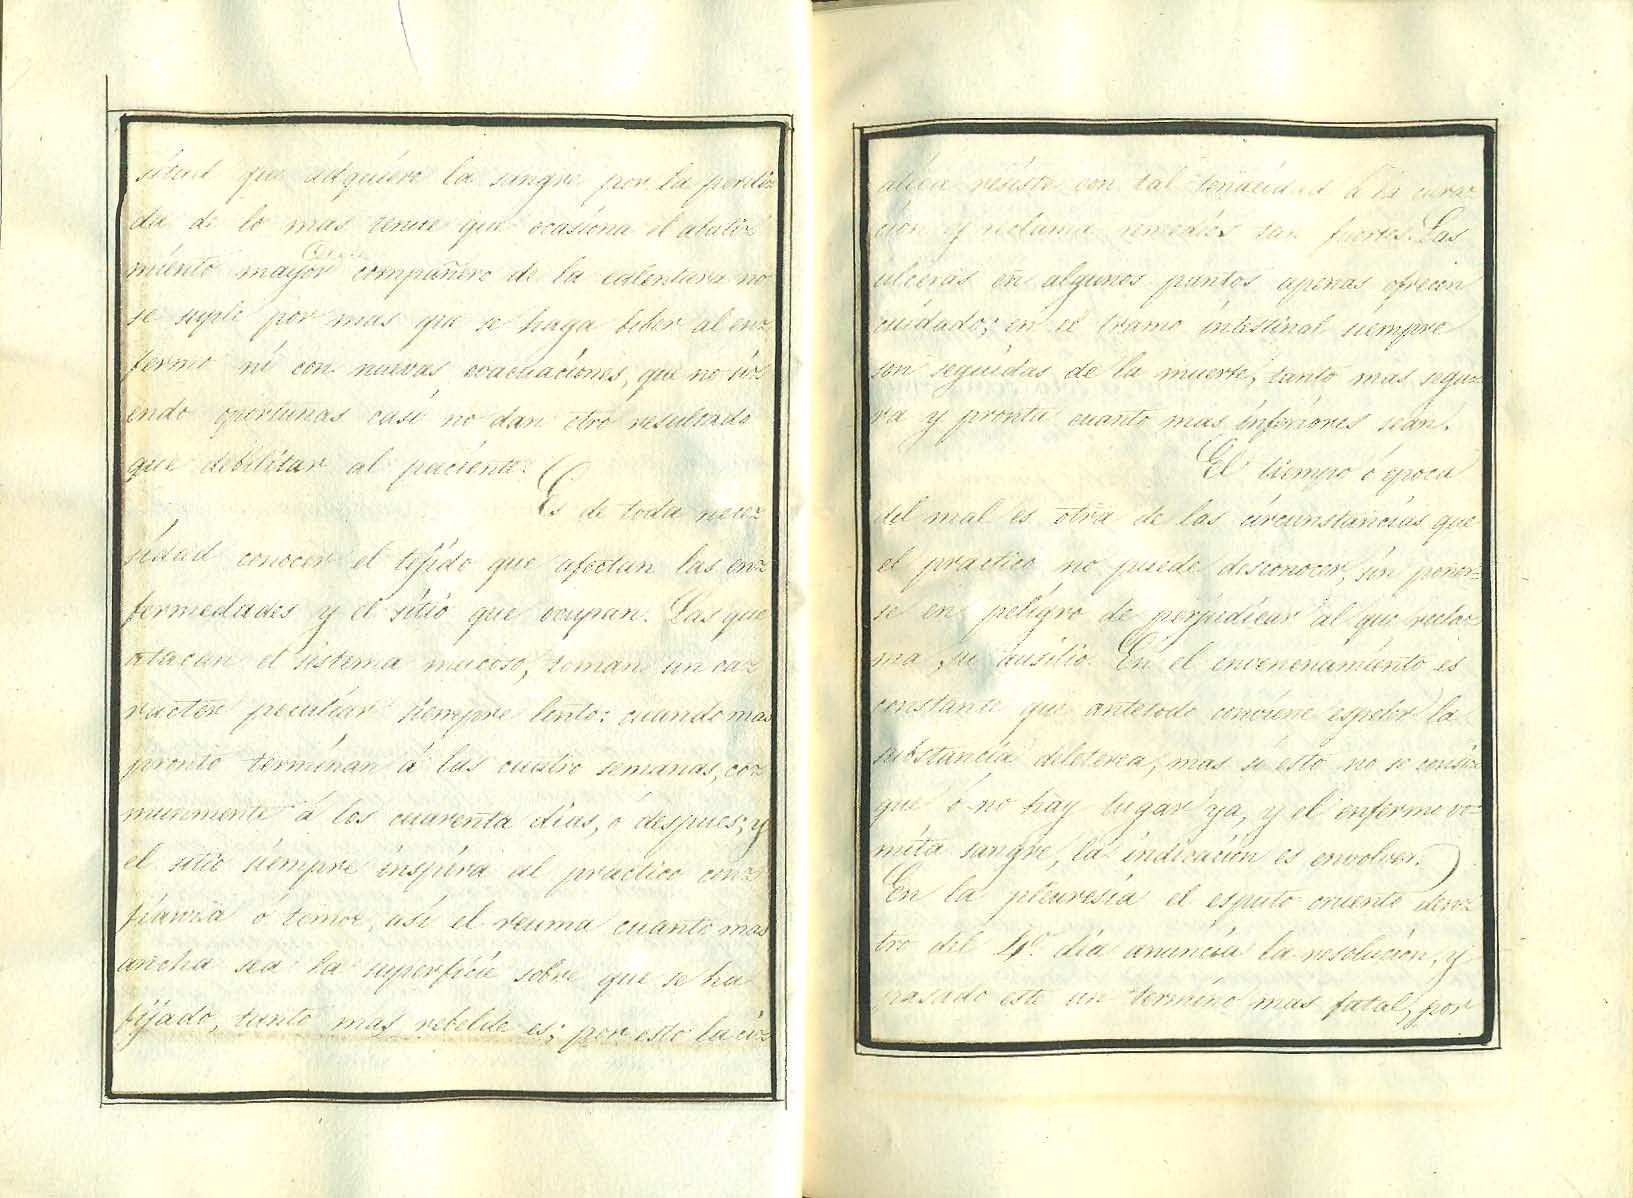 situd que adquiere la sangre por la perdi=
da de lo mas tenue que ocasiona el abati=
miento mayor compañero de la calentura no
se suple por mas que se haga beber al en=
fermo ni con nuevas evacuaciones, que no si=
endo oportunas casi no dan otro resultado
que debilitar al paciente.
Es de toda nece=
sidad conocer el tejido que afectan las en=
fermedades y el sitio que ocupan. Las que
atacan el sistema mucoso, toman un ca=
racter peculiar siempre lento: cuando mas
pronto terminan á las cuatro semanas, co=
munmente á los cuarenta dias, ó despues; y
el sitio siempre inspira al practico con=
fianza ó temor, asi el reuma cuanto mas
ancha sea la superficie sobre que se ha
fijado, tanto mas rebelde es; por esto la ci=
atica resiste con tal tenacidad á la cura=
cion y reclama remedios tan fuertes. Las
ulceras en algunos puntos apenas ofrecen
cuidado; en el tramo intestinal siempre
son seguidas de la muerte, tanto mas segu=
ra y pronta cuanto mas inferiores sean.
El tiempo ó epoca
del mal es otra de las circunstancias que
el practico no puede desconocer, sin poner=
se en peligro de perjudicar al que recla=
ma su ausilio. En el envenenamiento es
constante que antetodo conviene espeler la
substancia deleterea, mas si esto no se consi=
gue ó no hay lugar ya, y el enfermo vo=
mita sangre, la indicacion es envolver.
En la pleuresia el esputo cruento den=
tro del 4º dia anuncia la resolucion, y
pasado este un termino mas fatal, por